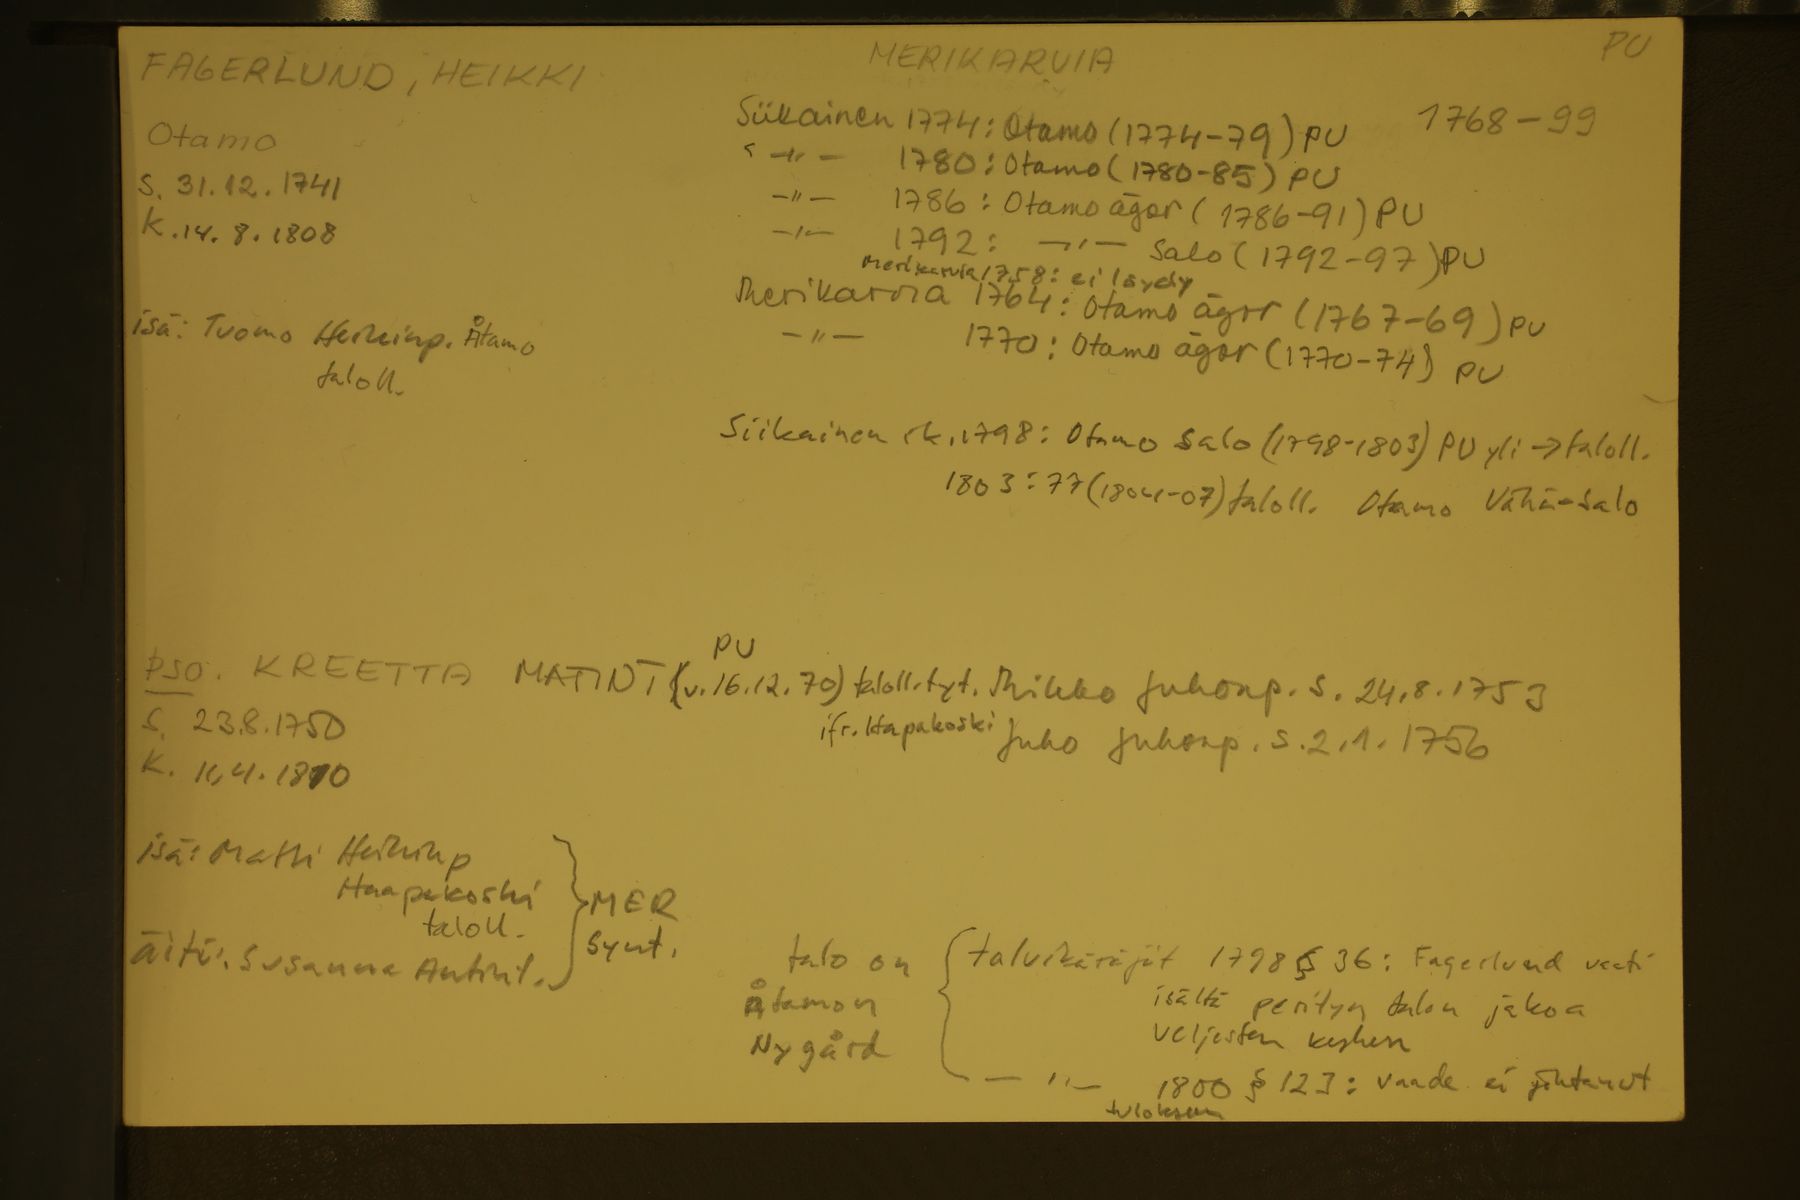 FAGERLUND, HEIKKI
MERIKARVIA
PU
Otamo
s. 31.12.1741
K. 14.8.1808
1768-99
Siikainen 1774: Otamo (1774-79) PU
-"- 1780: Otamo (1780-85) PU
-"- 1786: Otamo ägor (1786-91) PU
-"- 1792: -"- Salo (1792-97) PU
Merikarvia 1758: ei löydy
Merikarvia 1764: Otamo ägor (1767-69) PU
-"- 1770: Otamo ägor (1770-74) PU
isä: Tuomo Heikinp. Åtamo
taloll.
Siikainen rk. 1798: Otamo Salo (1798-1803) PU yli → taloll.
1803: 77 (1804-07) taloll. Otamo Vähä-Salo
PU
pso. KREETTA MATINT (v. 16.12.70) taloll.tyt. Mikko Juhonp. s. 24.8.1753
ifr. Hapakoski Juho Juhonp. s. 2.1.1756
s. 23.8.1750
K. 11.4.1810
isä: Matti Heikinp
Haapakoski
taloll.
äiti: Susanna Antint.
MER
synt.
talo on
Åtamon
Nygård
talvikäräjät 1798 § 36: Fagerlund vaati
isältä perityn talon jakoa
veljesten kesken
-"- 1800 § 123: vaade ei johtanut
tulokseen